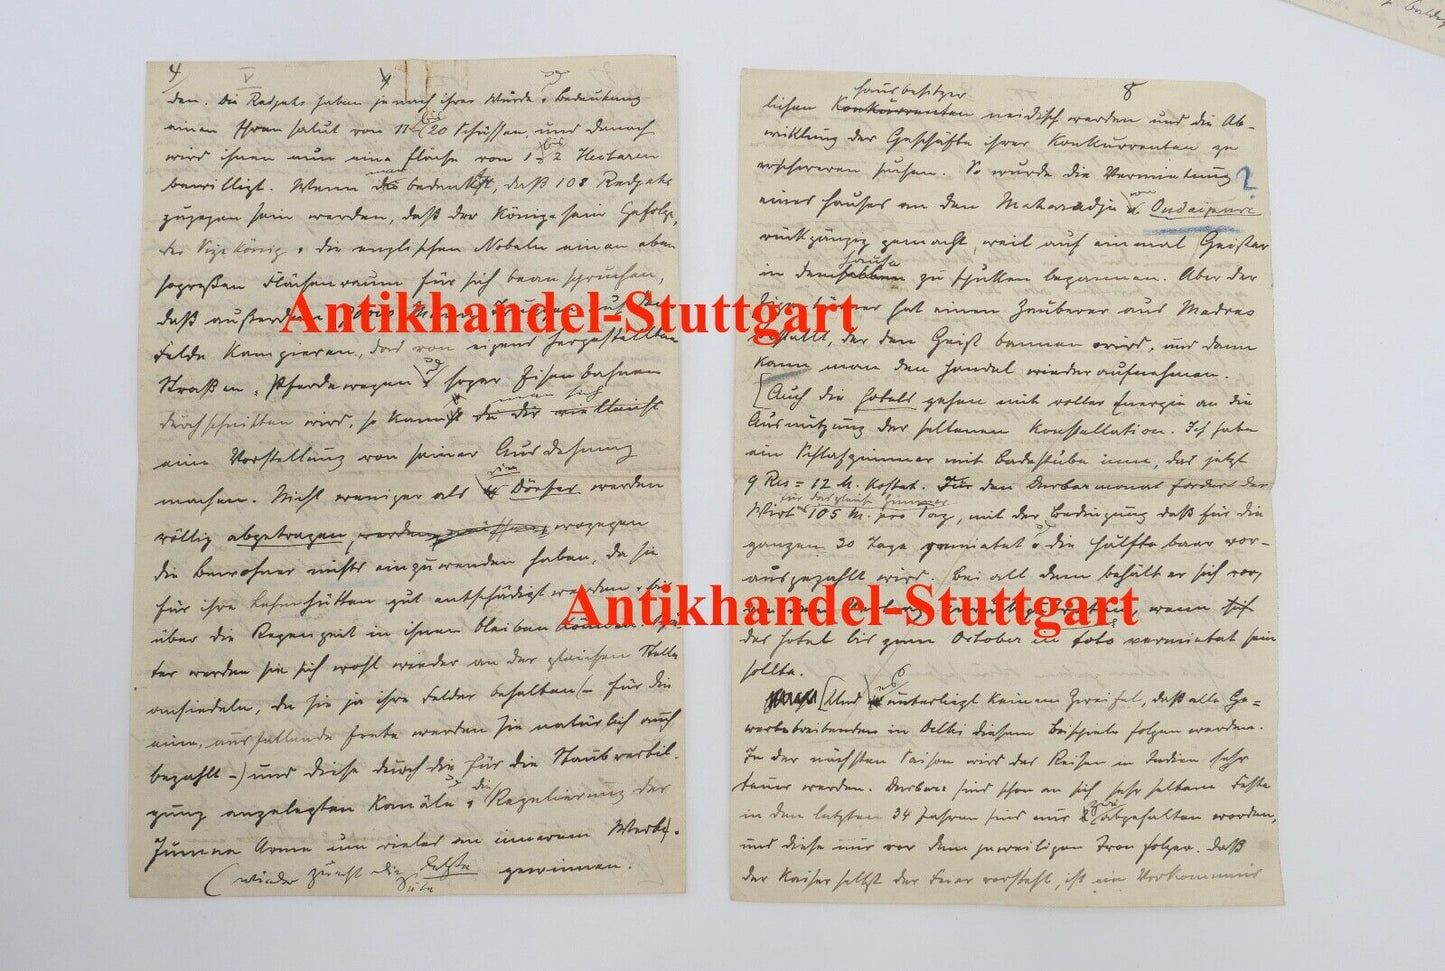 4 V 4
den. Die Radjahs haben je nach ihrer Würde u. Bedeutung
einen Ehrensalut von 11 bis 20 Schüssen, und danach
wird ihnen nun eine Fläche von 1 bis 2 Hectaren
bewilligt. Wenn man bedenkt, daß 108 Radjahs
zugegen sein werden, daß der König sein Gefolge,
der Vizekönig u. die englischen Nobeln einen eben
sogroßen Flächenraum für sich beanspruchen,
daß außerdem
Felde kampieren, das von eigens hergestellten
Straßen, Pferdewegen u. sogar Eisenbahnen
durchschnitten wird, so kann man sich vielleicht
eine Vorstellung von seiner Ausdehnung
machen. Nicht weniger als vier Dörfer werden
völlig abgetragen, wogegen
die Bewohner nichts einzuwenden haben, da sie
für ihre Lehmhütten gut entschädigt werden u. bis
über die Regenzeit in ihnen bleiben können. Spä-
ter werden sie sich wohl wieder an der gleichen Stelle
ansiedeln, da sie ja ihre Felder behalten (– für die
eine, ausfallende Ernte werden sie natürlich auch
bezahlt –) und diese durch die für die Staubvertil-
gung angelegten Kanäle u. die Regulierung der
Jumna Arme um vieles an innerem Werth
gewinnen.
(wieder zurück die letzte Seite
8
lichen Hausbesitzer Konkurrenten neidisch werden und die Ab-
wicklung der Geschäfte ihrer Konkurrenten zu
erschweren suchen. So wurde die Vermietung
eines Hauses an den Maharadja von Oudaipure ?
rückgängig gemacht, weil auf einmal Geister
in dem Hause zu spuken begannen. Aber der
Eigentümer hat einen Zauberer aus Madras
bestellt, der den Geist bannen wird, und dann
kann man den Handel wiederaufnehmen.
[Auch die Hotels gehen mit voller Energie an die
Ausnützung der seltenen Konstellation. Ich habe
ein Schlafzimmer mit Badestube inne, das jetzt
9 Res = 12 M. kostet. Für den Durbarmonat fordert der
Wirt für das gleiche Zimmer 105 M. pro Tag, mit der Bedingung daß für die
ganzen 30 Tage gemietet u. die Hälfte baar vor-
ausgezahlt wird. Bei all dem behält er sich vor,
wenn
das Hotel bis zum October in toto vermietet sein
sollte.
[Und es unterliegt keinem Zweifel, daß alle Ge=
werbetreibenden in Delhi diesem Beispiele folgen werden.
In der nächsten Saison wird das Reisen in Indien sehr
teuer werden. Durbare sind schon an sich sehr seltene Feste
in den letzten 34 Jahren sind nur zwei abgehalten worden,
und diese nur vor dem jeweiligen Tronfolger. Daß
der Kaiser selbst der Feier vorsteht, ist ein Vorkommnis
Antikhandel-Stuttgart
Antikhandel-Stuttgart